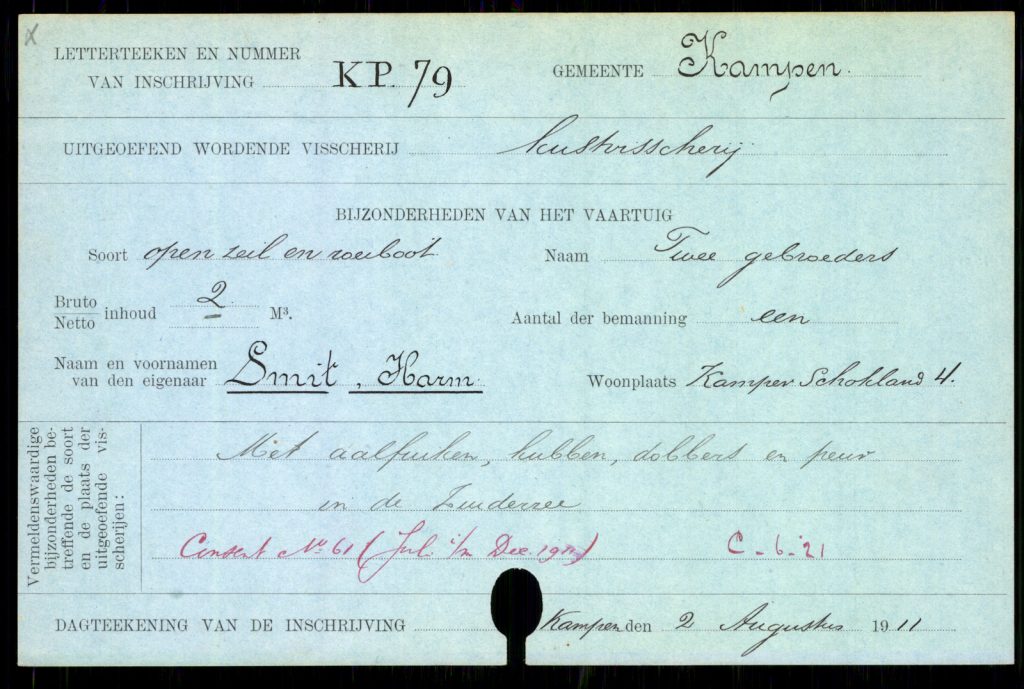 x
LETTERTEEKEN EN NUMMER
VAN INSCHRIJVING KP. 79 GEMEENTE Kampen.
UITGEOEFEND WORDENDE VISSCHERIJ kustvisscherij
BIJZONDERHEDEN VAN HET VAARTUIG
Soort open zeil en roeiboot Naam Twee gebroeders
Bruto
Netto inhoud 2 M³. Aantal der bemanning een
Naam en voornamen
van den eigenaar Smit, Harm. Woonplaats Kamper Schokland 4.
Vermeldenswaardige
bijzonderheden be-
treffende de soort
en de plaats der
uitgeoefende vis-
scherijen:
Met aalfuiken, kubben, dobbers en peur
in de Zuiderzee
Consent No 61 (Juli t/m Dec. C - 6 - 21
DAGTEEKENING VAN DE INSCHRIJVING Kampen den 2 Augustus 1911